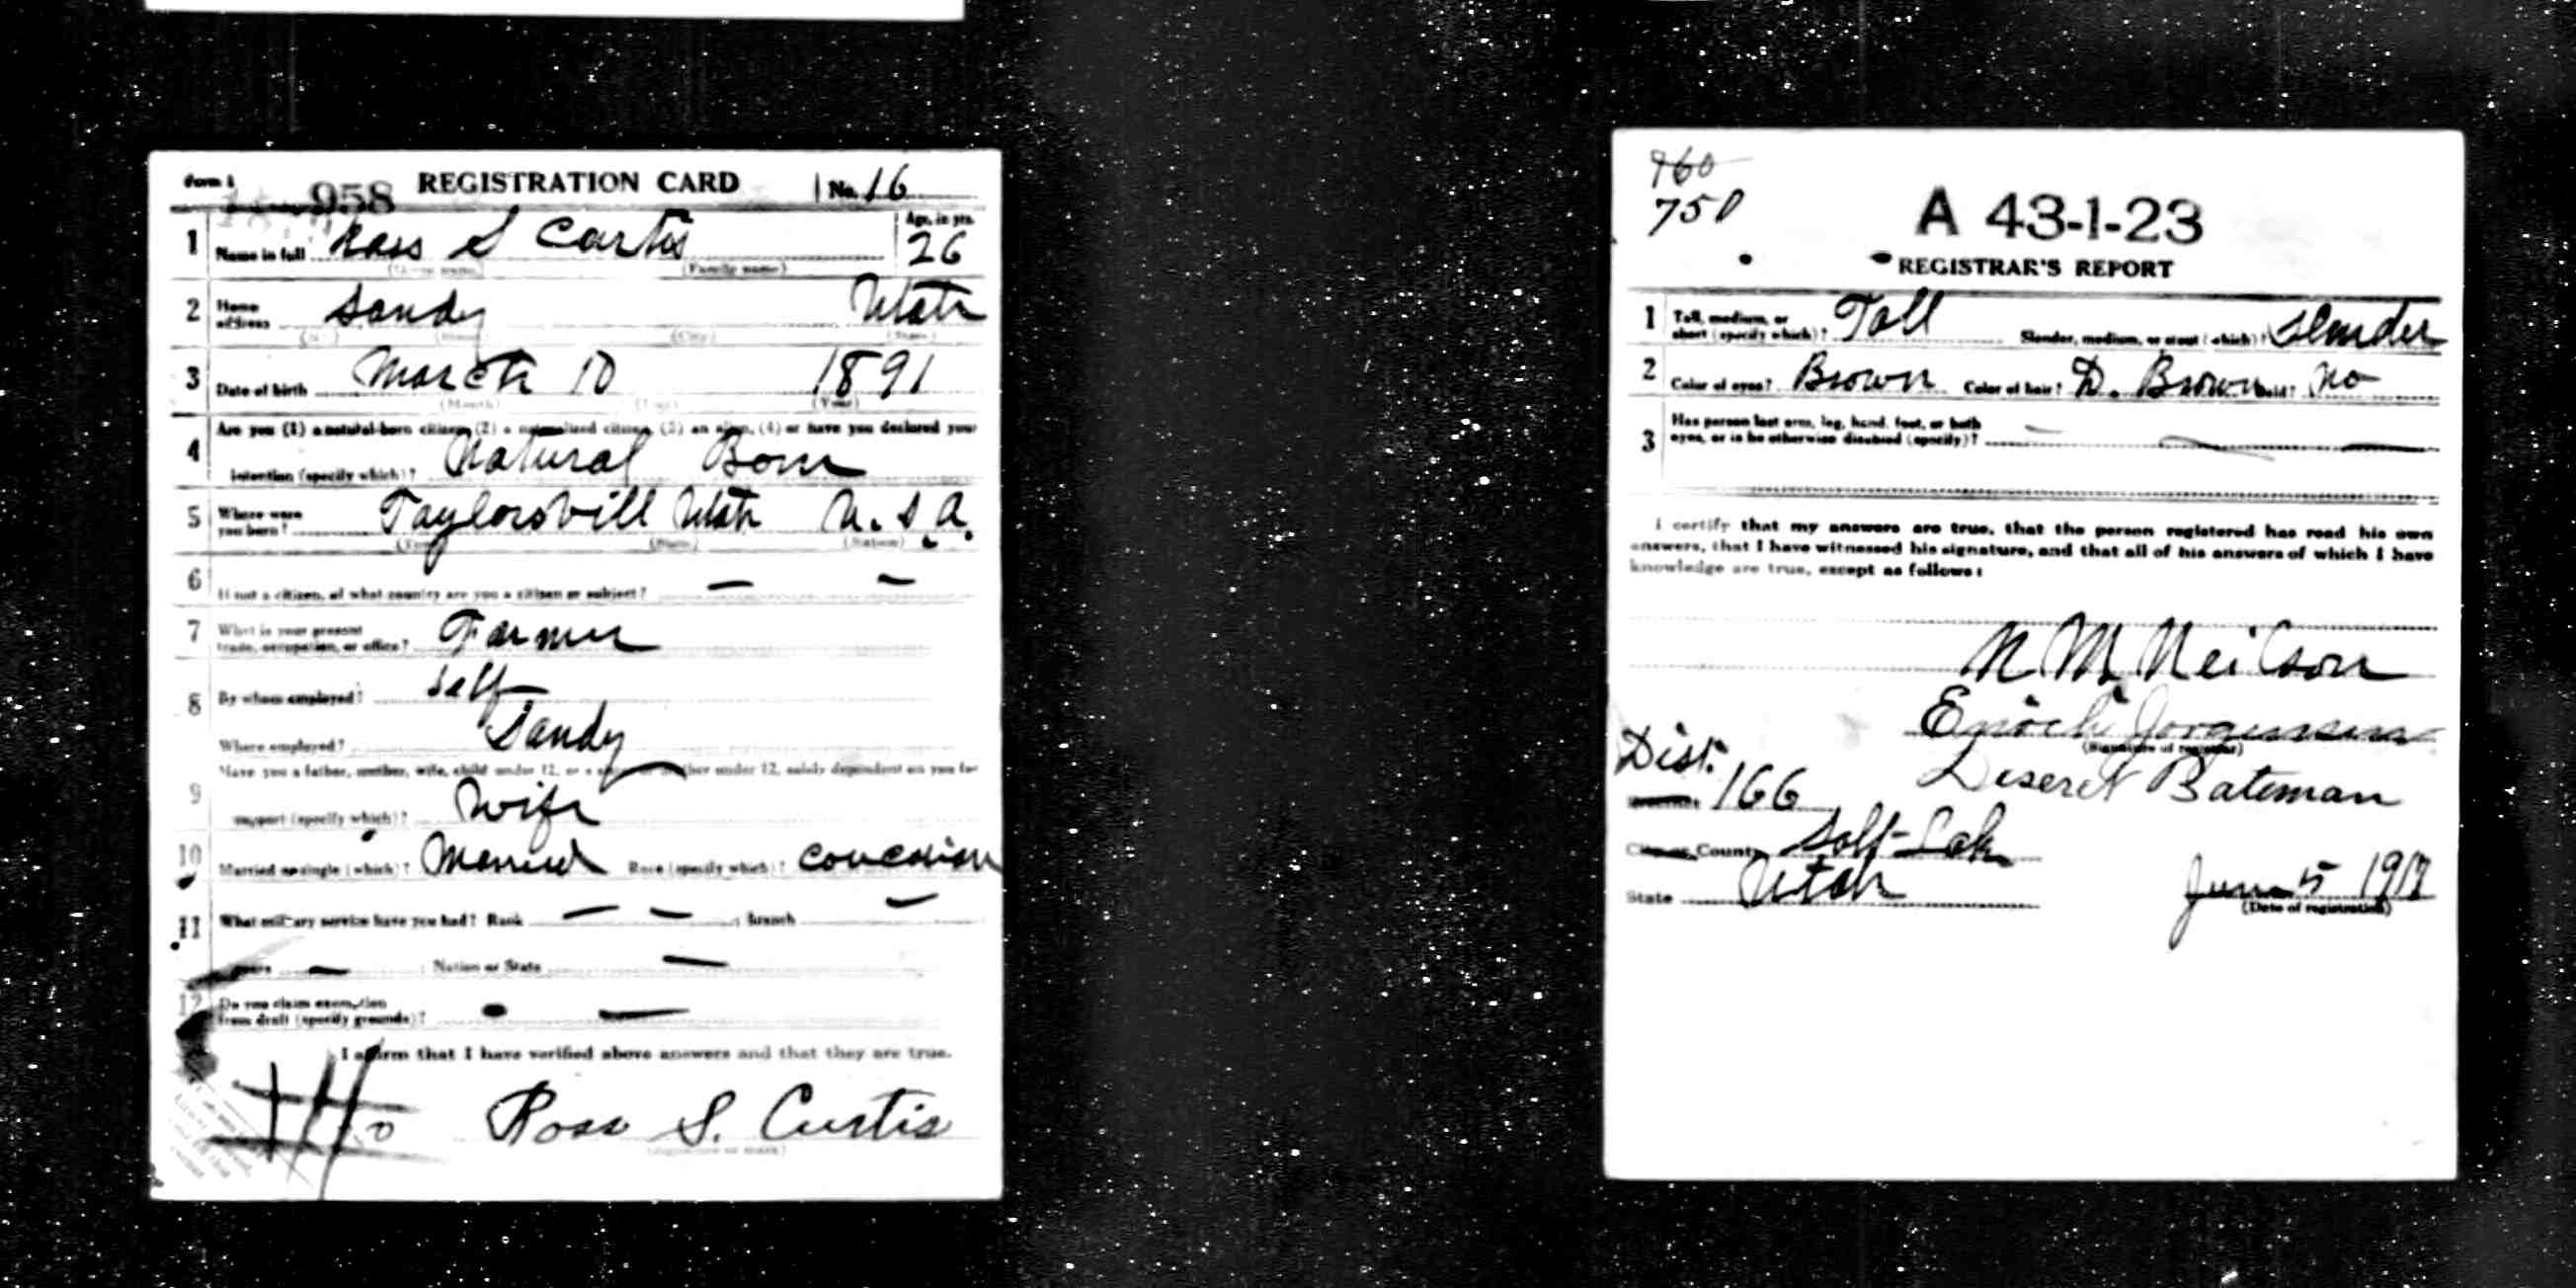 Form 1 958 REGISTRATION CARD No. 16
1 Name in full Ross S Curtis Age, in yrs. 26
(Given name) (Family name)
2 Home address Sandy Utah
(No.) (Street) (City) (State)
3 Date of birth March 10 1891
(Month) (Day) (Year)
4 Are you (1) a natural-born citizen, (2) a naturalized citizen, (3) an alien, (4) or have you declared your
intention (specify which)? Natural Born
5 Where were you born? Taylorsvill Utah U. S A.
(Town) (State) (Nation)
6 If not a citizen, of what country are you a citizen or subject? — —
7 What is your present trade, occupation, or office? Farmer
8 By whom employed? Self
Where employed? Sandy
9 Have you a father, mother, wife, child under 12, or a sister or brother under 12, solely dependent on you for
support (specify which)? Wife
10 Married or single (which)? Married Race (specify which)? Coucasian
11 What military service have you had? Rank — — ; branch —
years — ; Nation or State —
12 Do you claim exemption from draft (specify grounds)? —
I affirm that I have verified above answers and that they are true.
Ross S. Curtis
(Signature or mark)
960
750
A 43-1-23
REGISTRAR'S REPORT
1 Tall, medium, or short (specify which)? Tall Slender, medium, or stout (which)? Slender
2 Color of eyes? Brown Color of hair? D. Brown Bald? No
3 Has person lost arm, leg, hand, foot, or both
eyes, or is he otherwise disabled (specify)? — — —
I certify that my answers are true, that the person registered has read his own
answers, that I have witnessed his signature, and that all of his answers of which I have
knowledge are true, except as follows:
N. M. Neilson
Enoch Jorgensen
(Signature of registrar)
Deseret Bateman
Dist.
Precinct 166
City or County Salt Lak
State Utah June 5 1917
(Date of registration)